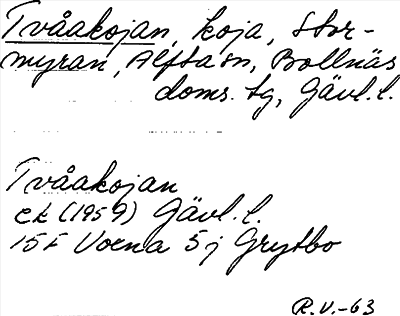 Tvåakojan, koja, Stor-
myran, Alfta sn, Bollnäs
doms. tg, Gävl. l.
Tvåakojan
ek (1959) Gävl. l.
15F Voxna 5j Grytbo
R.V.-63